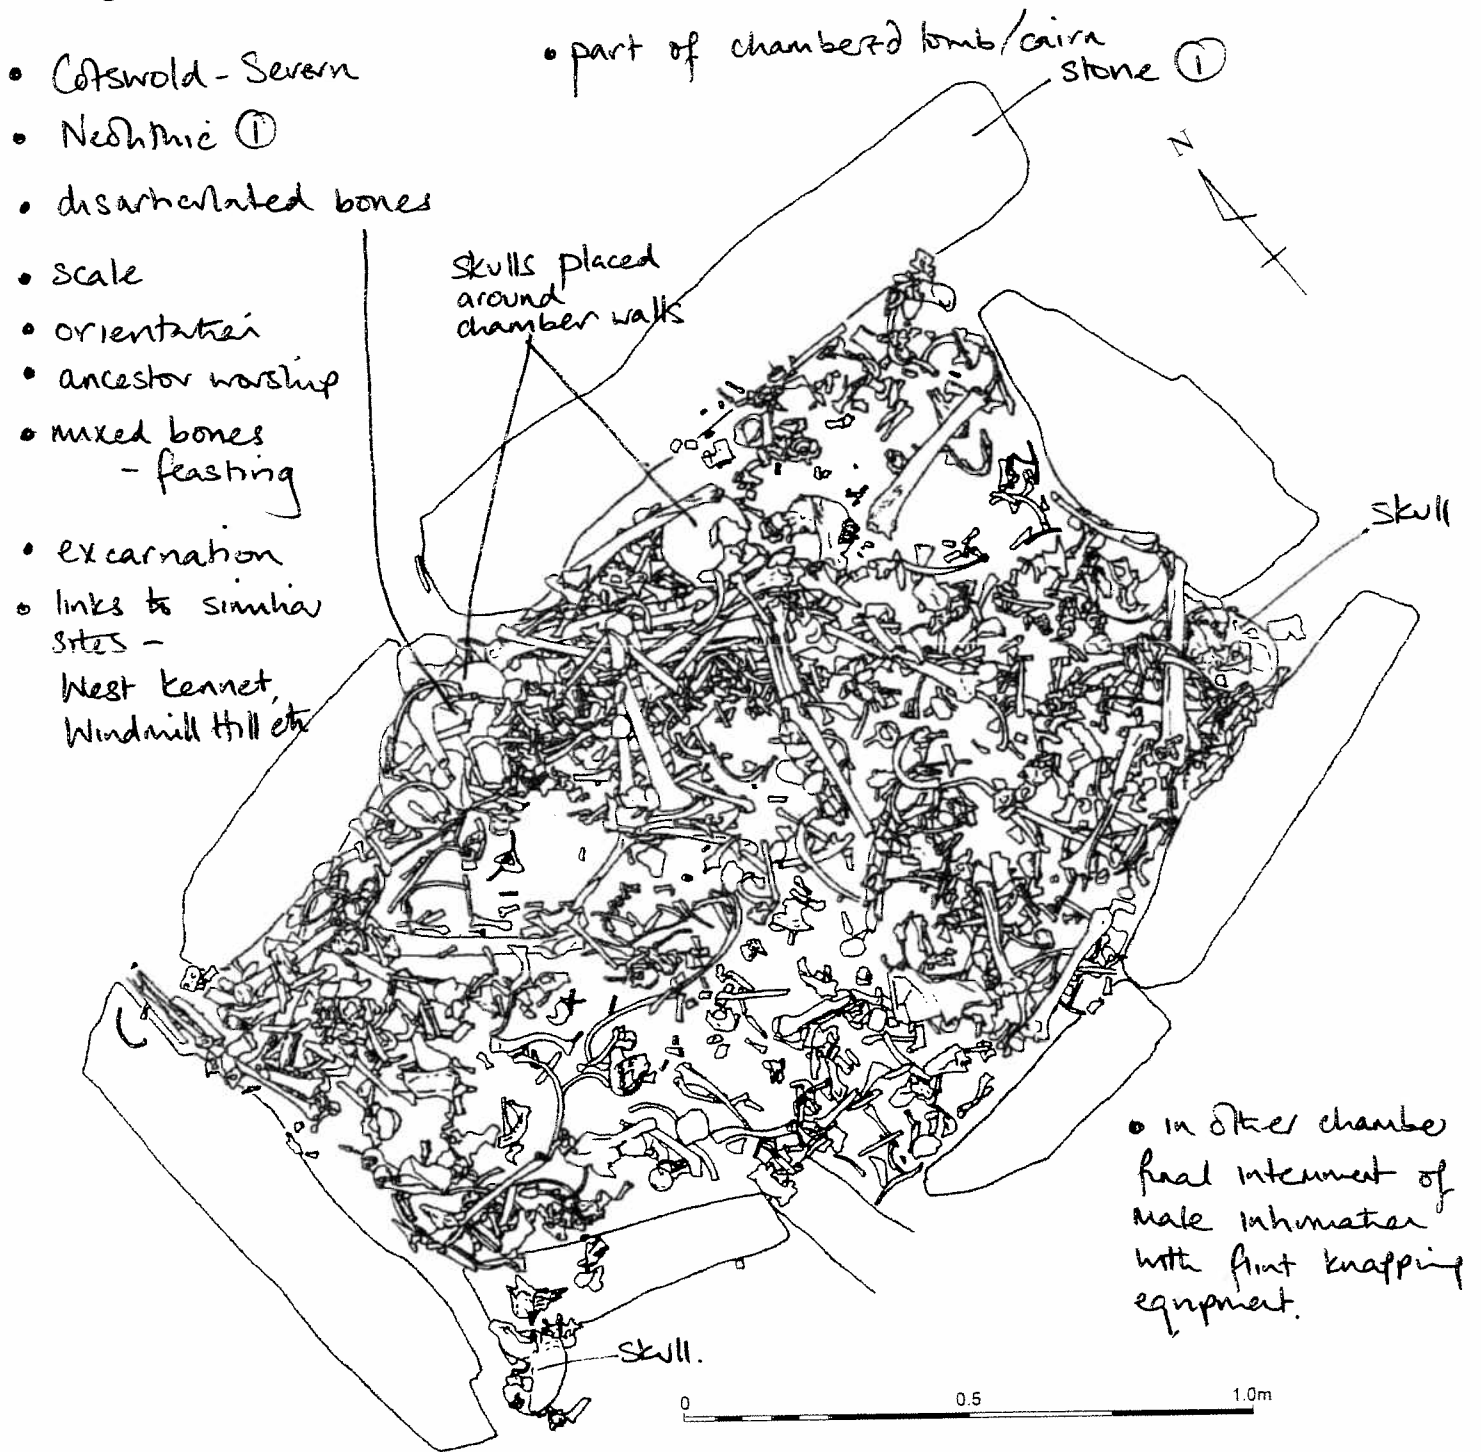 • Cotswold - Severn
• Neolithic ①
• disarticulated bones
• scale
• orientation
• ancestor worship
• mixed bones
- feasting
• excarnation
• links to similar
sites -
West Kennet,
Windmill Hill etc
• part of chambered tomb/cairn
stone ①
N
skulls placed
around
chamber walls
skull
• in other chamber
final interment of
male inhumation
with flint knapping
equipment.
skull.
0 0.5 1.0m